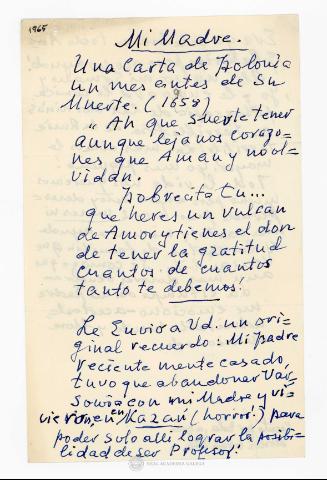 1965
Mi Madre.
Una Carta de Polonia
un mes antes de Su
Muerte. (1658)
9
"Ah que suerte tener
aunque lejanos corazo=
nes que Aman y no ol=
vidan.
Pobrecita tu...
que heres un vulcan
de Amor y tienes el don
de tener la gratitud
cuantos de cuantos
tanto te debemos!
Le Envio a Vd. un ori=
ginal recuerdo: Mi padre
reciente mente casado,
tuvo que abandonar Var=
sovia con mi Madre y vi=
vieron en en Kazań (horror!) para
poder solo alli lograr la posibi=
lidad de ser Profesor!
REAL ACADEMIA GALEGA